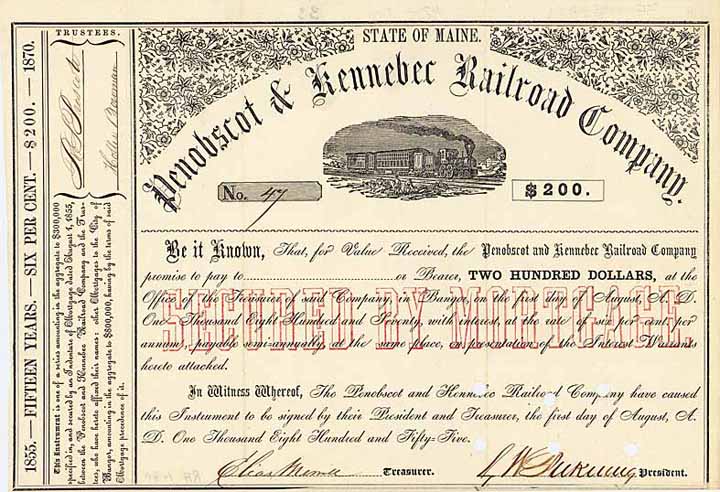 STATE OF MAINE.
Penobscot & Kennebec Railroad Company.
No. 47
$200.
Be it Known, That, for Value Received, the Penobscot and Kennebec Railroad Company
promise to pay to or Bearer, TWO HUNDRED DOLLARS, at the
Office of the Treasurer of said Company, in Bangor, on the first day of August, A. D.
One Thousand Eight Hundred and Seventy, with interest, at the rate of six per cent. per
annum, payable semi-annually, at the same place, on presentation of the Interest Warrants
hereto attached.
SECURED BY MORTGAGE
In Witness Whereof, The Penobscot and Kennebec Railroad Company have caused
this Instrument to be signed by their President and Treasurer, the first day of August, A.
D. One Thousand Eight Hundred and Fifty-Five.
Treasurer.
President.
TRUSTEES.
1855.—FIFTEEN YEARS.—SIX PER CENT.—$200.—1870.
This Instrument is one of a series amounting in the aggregate to $300,000
specified in, and secured by an Indenture of Mortgage dated August 1, 1855,
between the Penobscot and Kennebec Railroad Company and the Trus-
tees, who have hereto affixed their names: other Mortgages to the City of
Bangor, amounting in the aggregate to $800,000, having by the terms of said
Mortgage precedence of it.